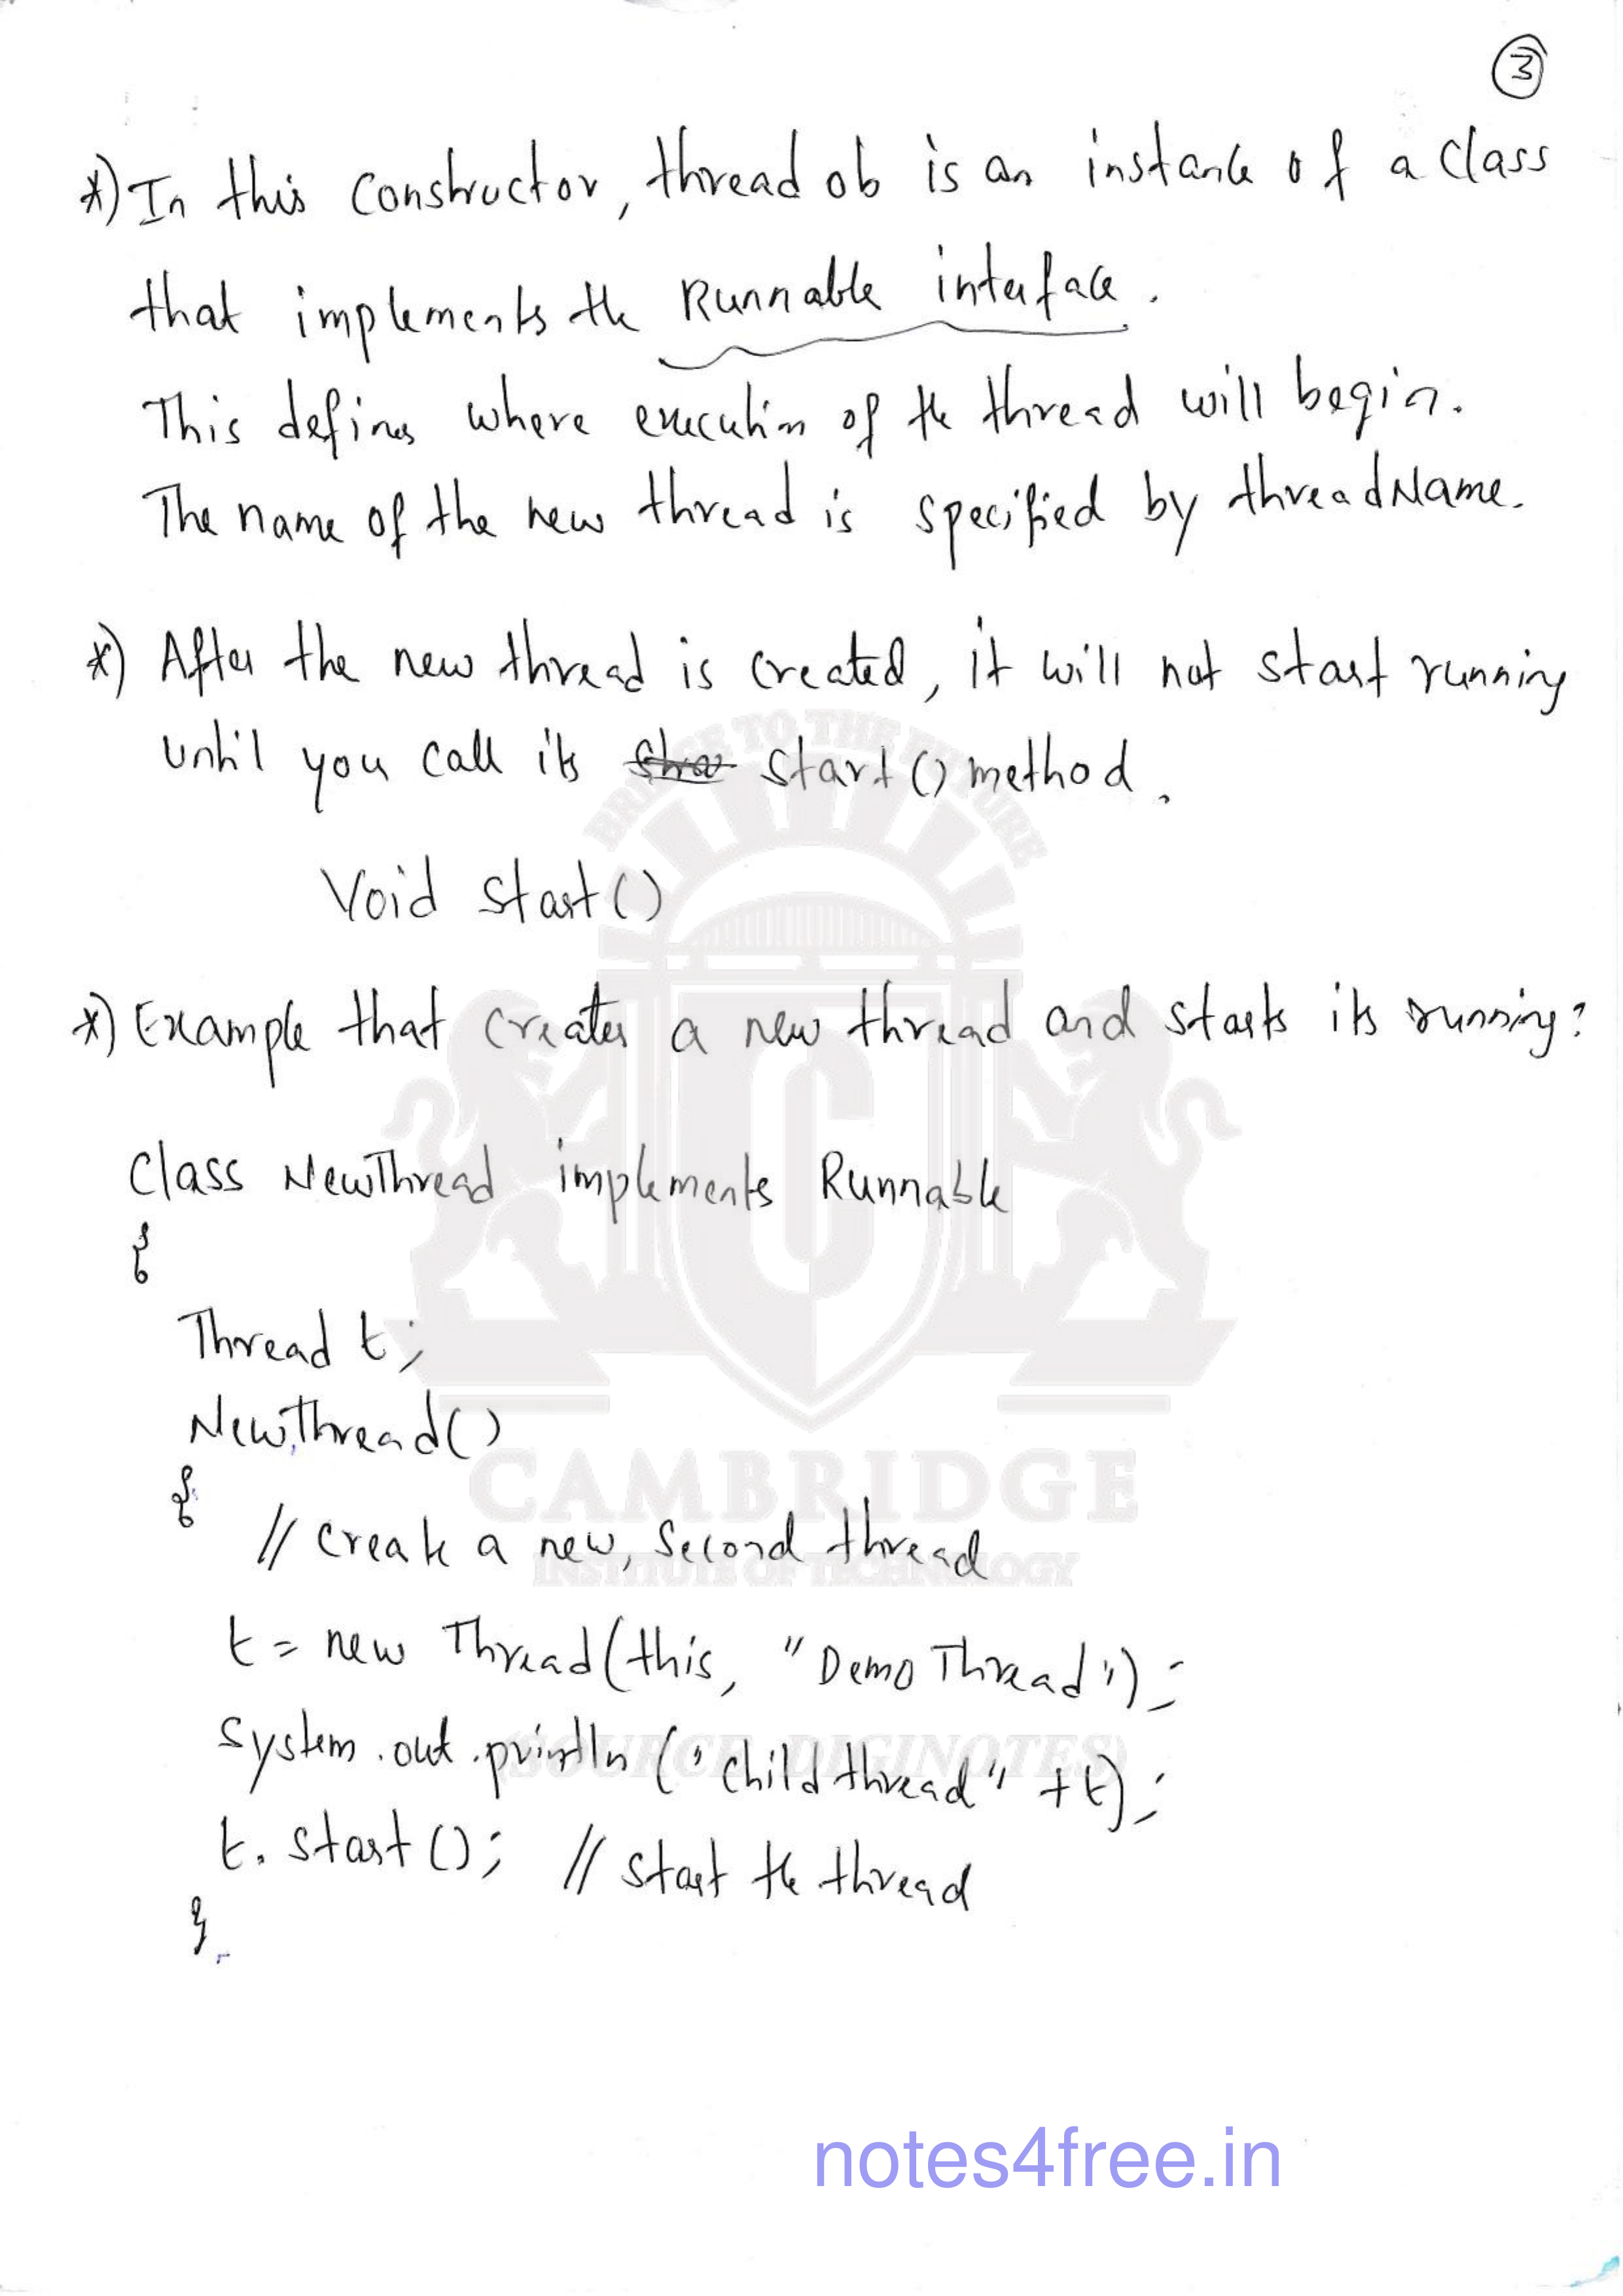 3
*) In this constructor, thread ob is an instance of a class
that implements the Runnable interface.
This defines where execution of the thread will begin.
The name of the new thread is specified by threadName.
*) After the new thread is created, it will not start running
until you call its start() method.
BRIDGE TO THE FUTURE
Void start()
*) Example that creates a new thread and starts its running:
Class NewThread implements Runnable
{
Thread t;
NewThread()
CAMBRIDGE
{
// create a new, second thread
INSTITUTE OF TECHNOLOGY
t = new Thread(this, "Demo Thread");
System.out.println ("child thread" + t);
(SOURCE DIGINOTES)
t. start(); // start the thread
}
notes4free.in